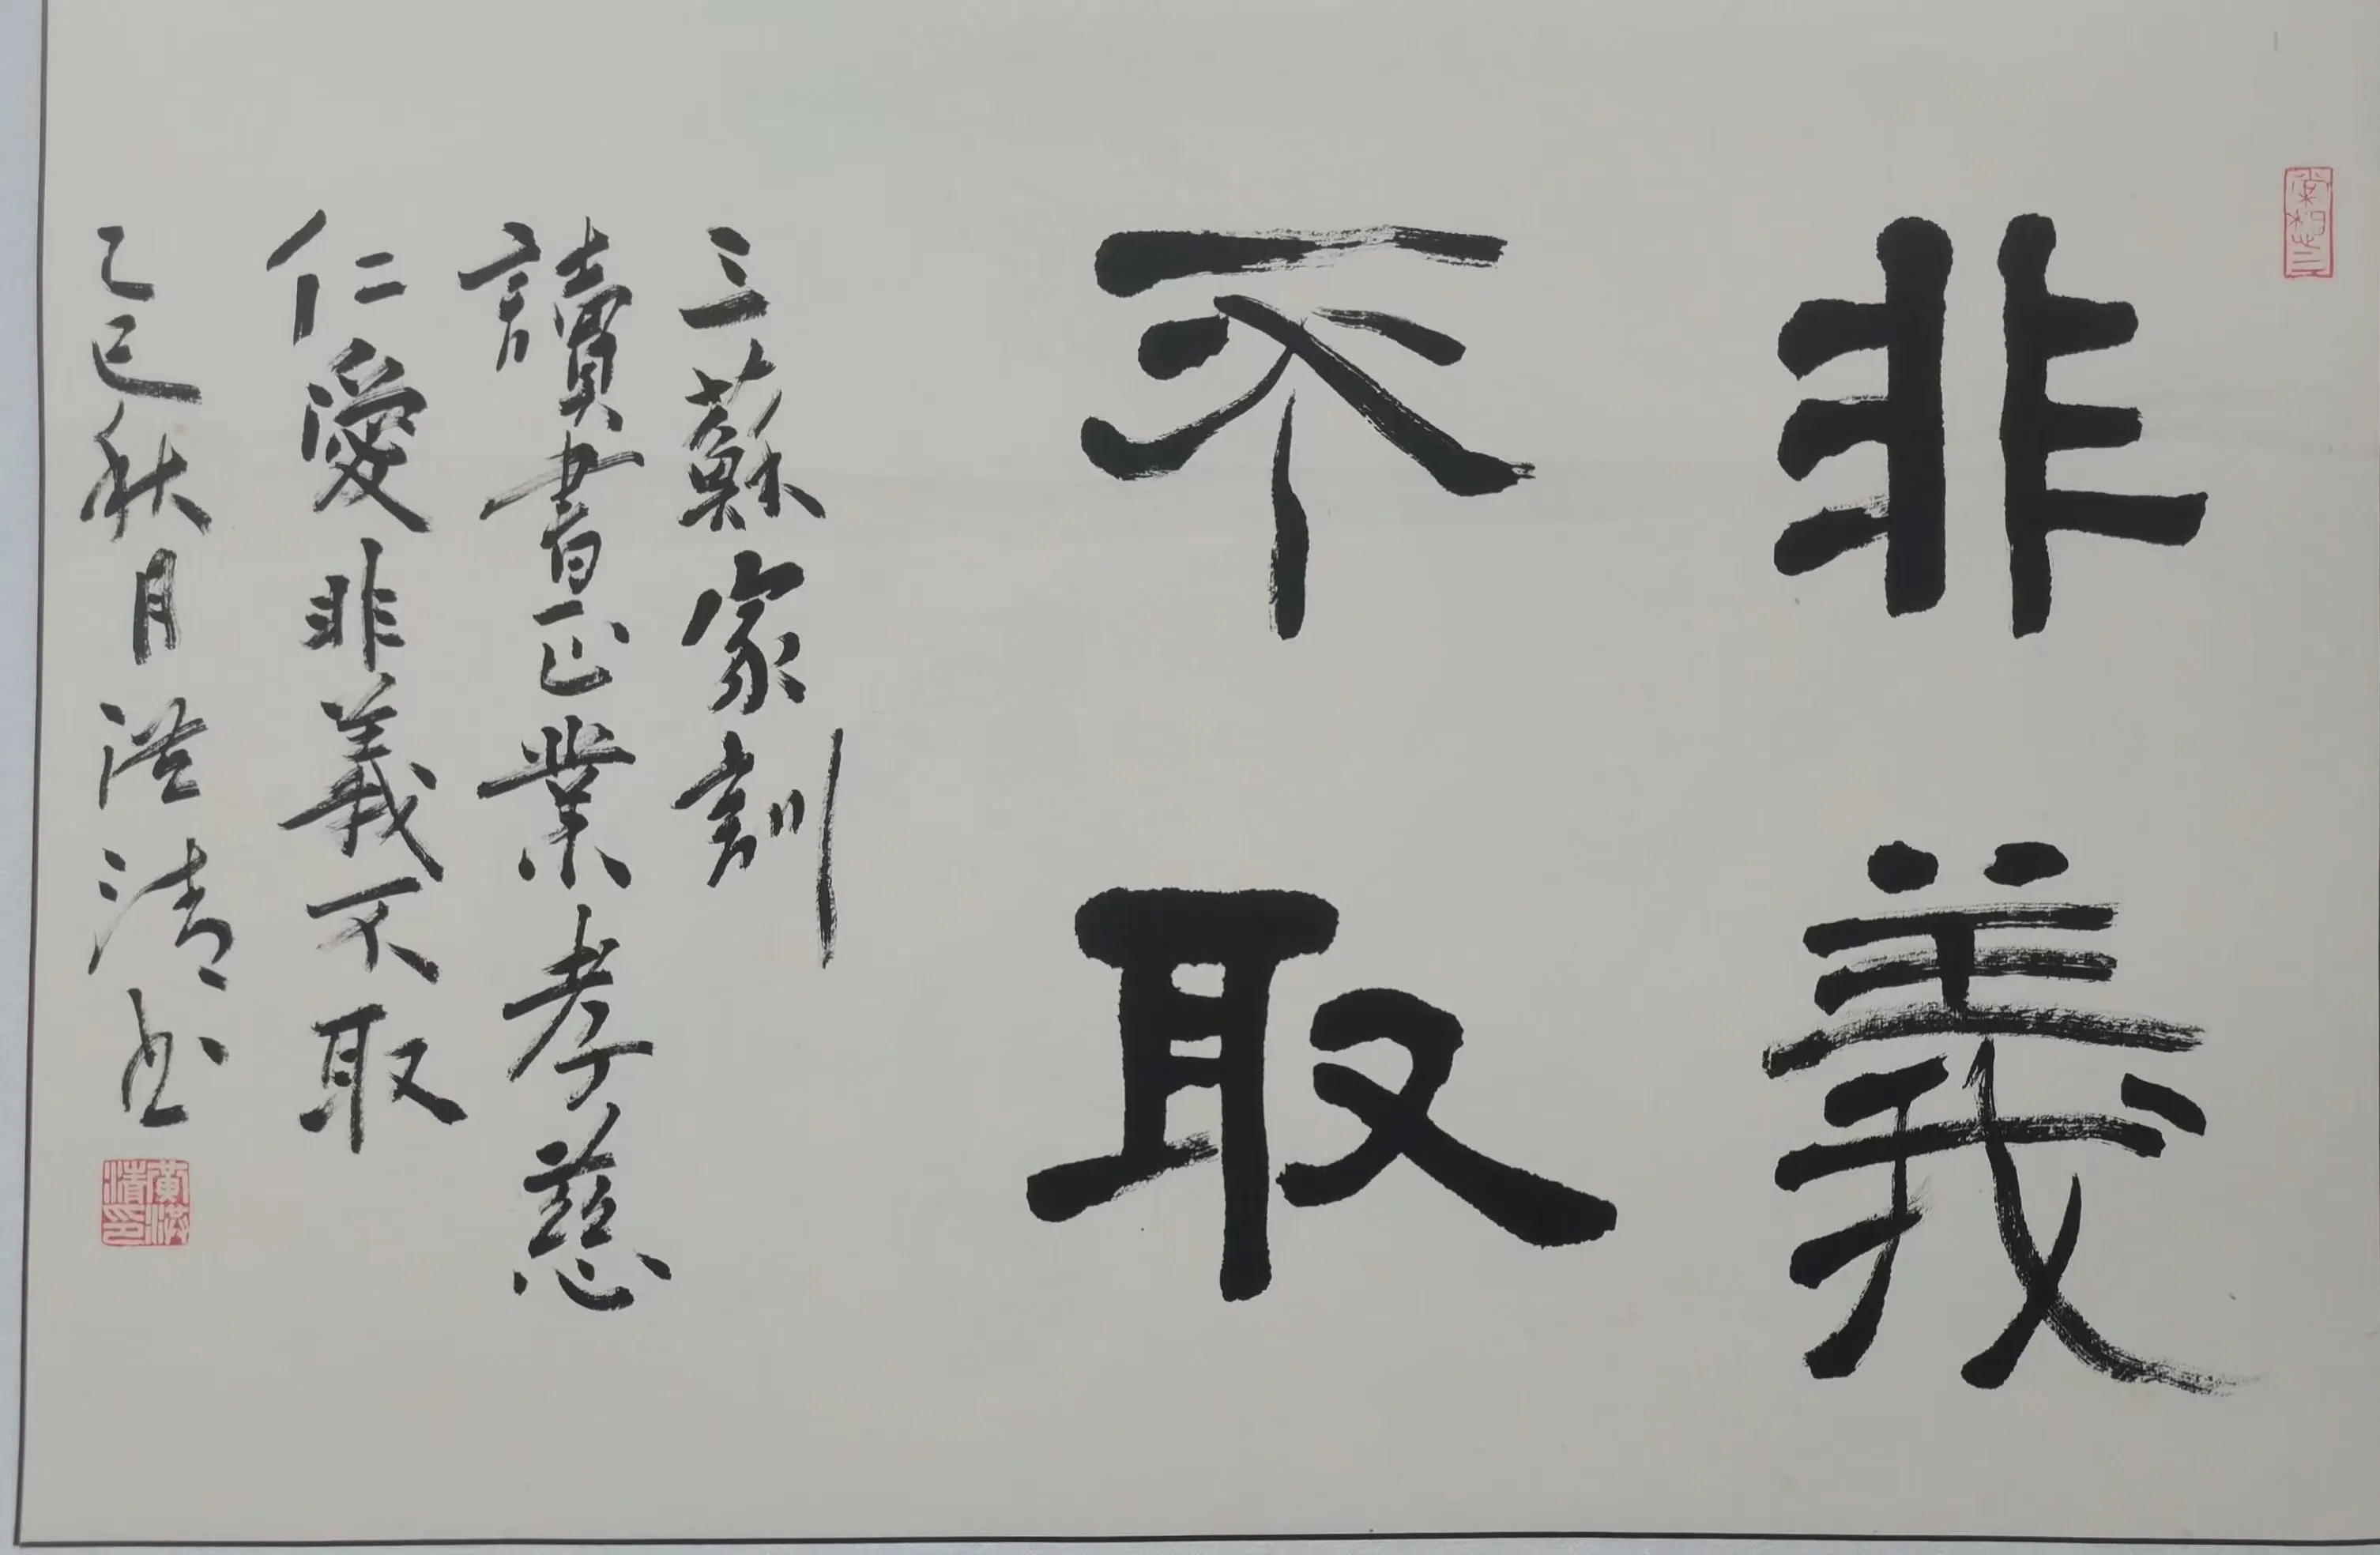 非義
不取
三蘇家訓
讀書正業孝慈
仁愛非義不取
乙巳秋月洪清书